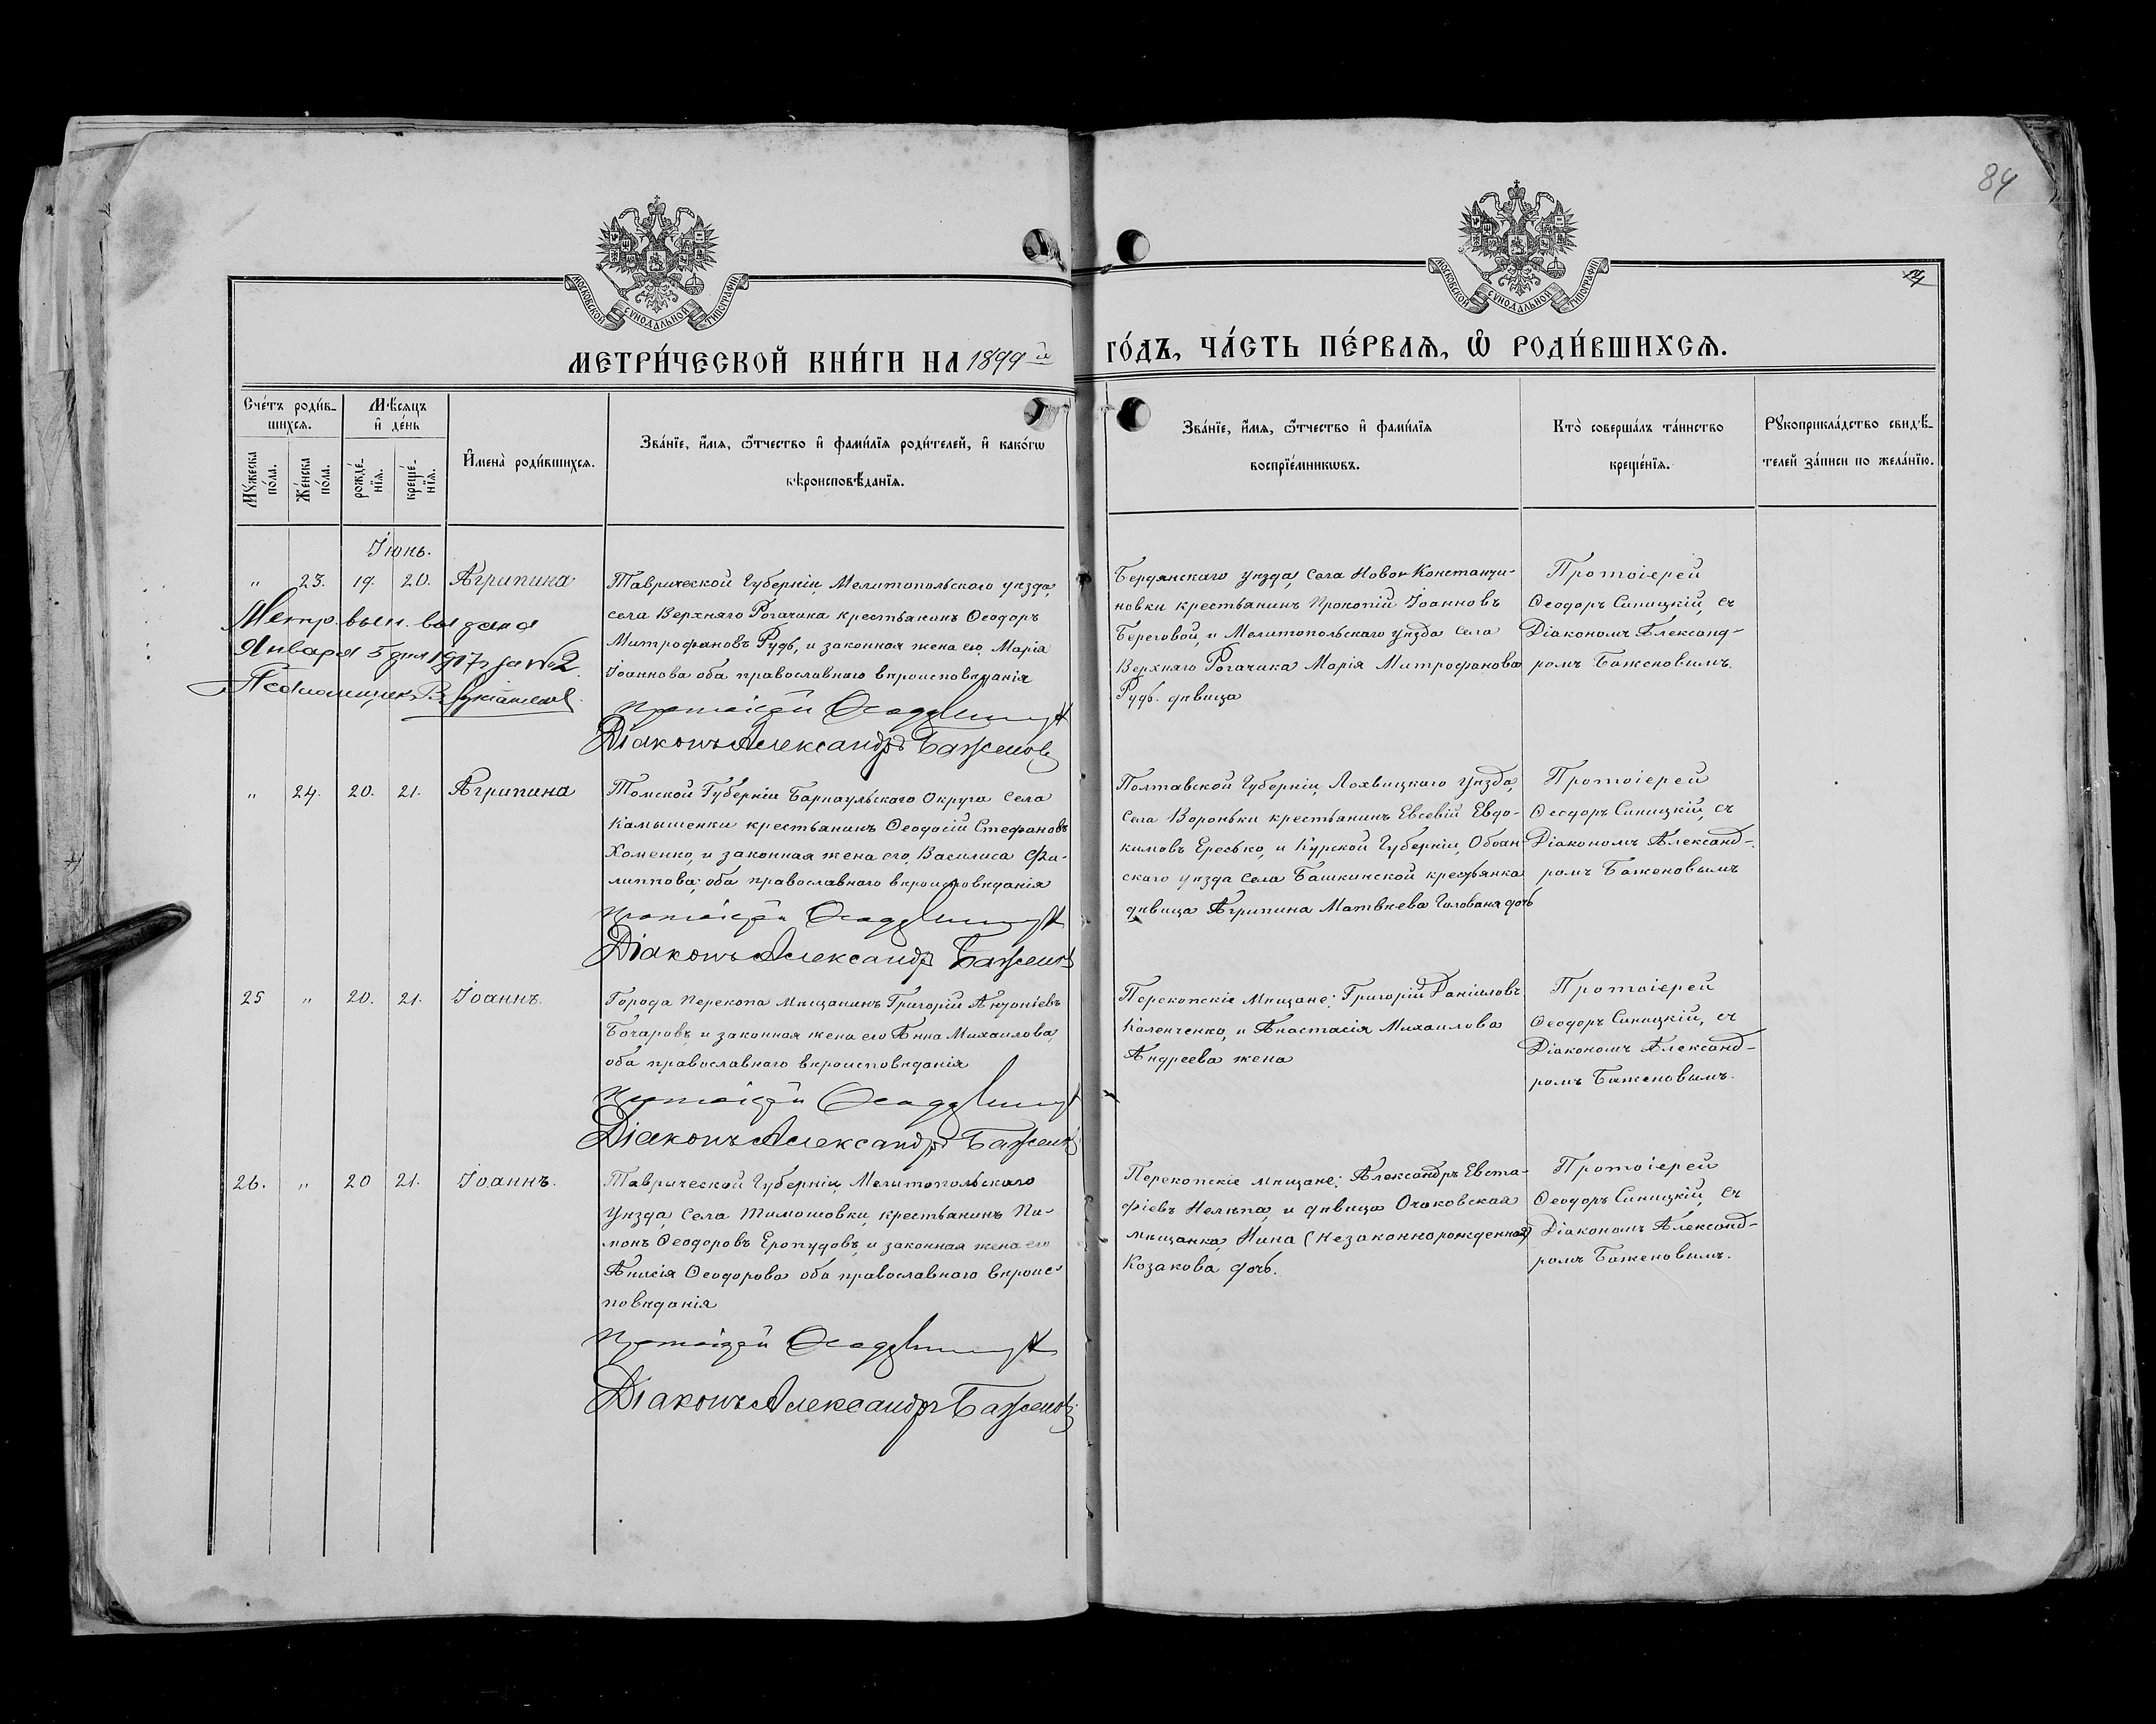 84
МОСКОВСКОЙ СУНОДАЛЬНОЙ ТИПОГРАФІИ
МОСКОВСКОЙ СУНОДАЛЬНОЙ ТИПОГРАФІИ
МЕТРИ́ЧЕСКОЙ КНИ́ГИ НА 1899 й
ГО́ДЪ, ЧА́СТЬ ПЕ́РВАѦ, Ѽ РОДИ́ВШИХСѦ.
Сче́тъ роди́в-
шихсѧ.
Мѣ́сѧцъ
и҆ де́нь
Мꙋ́жеска
по́ла.
Же́нска
по́ла.
рожде́-
нїѧ.
креще́-
нїѧ.
И҆мена̀ роди́вшихсѧ.
Зва́нїе, и҆́мѧ, ѻ҆́тчество и҆ фами́лїѧ роди́телей, и҆ како́гѡ
вѣроисповѣ́данїѧ.
Зва́нїе, и҆́мѧ, ѻ҆́тчество и҆ фами́лїѧ
воспрїе́мникѡвъ.
Кто̀ соверша́лъ та́инство
креще́нїѧ.
Рꙋкоприкла́дство свидѣ́-
телей за́писи по жела́нїю.
Іюнь.
" 23. 19. 20. Агрипина
Таврической Губерніи, Мелитопольского уѣзда,
села Верхняго Рогачика крестьянинъ Ѳеодоръ
Митрофановъ Рудь, и законная жена его, Марія
Іоаннова оба православнаго вѣроисповѣданія
Протоіерей Ѳеодоръ Синицкій
Діаконъ Александръ Баженовъ
Метр. вып. выдана
Января 5 дня 1917 г за № 2
Псаломщикъ В.
Бердянскаго уѣзда, села Ново-Константи-
новки крестьянинъ Прокопій Іоанновъ
Береговой, и Мелитопольскаго уѣзда села
Верхняго Рогачика Марія Митрофанова
Рудь. дѣвица
Протоіерей
Ѳеодоръ Синицкій, съ
Діакономъ Александ-
ромъ Баженовымъ.
" 24. 20. 21. Агрипина
Томской Губерніи Барнаульскаго Округа села
Камышенки крестьянинъ Ѳеодосій Стефановъ
Хоменко, и законная жена его, Василиса Фи-
липпова, оба православнаго вѣроисповѣданія
Протоіерей Ѳеодоръ Синицкій
Діаконъ Александръ Баженовъ
Полтавской Губерніи, Лохвицкаго уѣзда,
села Вороньки крестьянинъ Евсевій Евдо-
кимовъ Ересько, и Курской Губерніи, Обоян-
скаго уѣзда села Башкинской крестьянка
дѣвица Агрипина Матвѣева Голобана дочь
Протоіерей
Ѳеодоръ Синицкій, съ
Діакономъ Александ-
ромъ Баженовымъ
25 " 20. 21. Іоаннъ.
Города Перекопа мѣщанинъ Григорій Антоніевъ
Бочаровъ, и законная жена его Анна Михаилова,
оба православнаго вѣроисповѣданія
Протоіерей Ѳеодоръ Синицкій
Діаконъ Александръ Баженовъ
Перекопскіе мѣщане: Григорій Даніиловъ
Каленченко, и Анастасія Михаилова
Андреева жена
Протоіерей
Ѳеодоръ Синицкій, съ
Діакономъ Александ-
ромъ Баженовымъ.
26. " 20 21. Іоаннъ.
Таврической Губерніи, Мелитопольскаго
уѣзда, села Тимошовки, крестьянинъ Пи-
монъ Ѳеодоровъ Еропудовъ, и законная жена его
Анисія Ѳеодорова оба православнаго вѣроис-
повѣданія
Протоіерей Ѳеодоръ Синицкій
Діаконъ Александръ Баженовъ
Перекопскіе мѣщане: Александръ Евста-
фіевъ Нелѣпа, и дѣвица Очаковская
мѣщанка, Нина (незаконнорожденная)
Козакова дочь.
Протоіерей
Ѳеодоръ Синицкій, съ
Діакономъ Александ-
ромъ Баженовымъ.